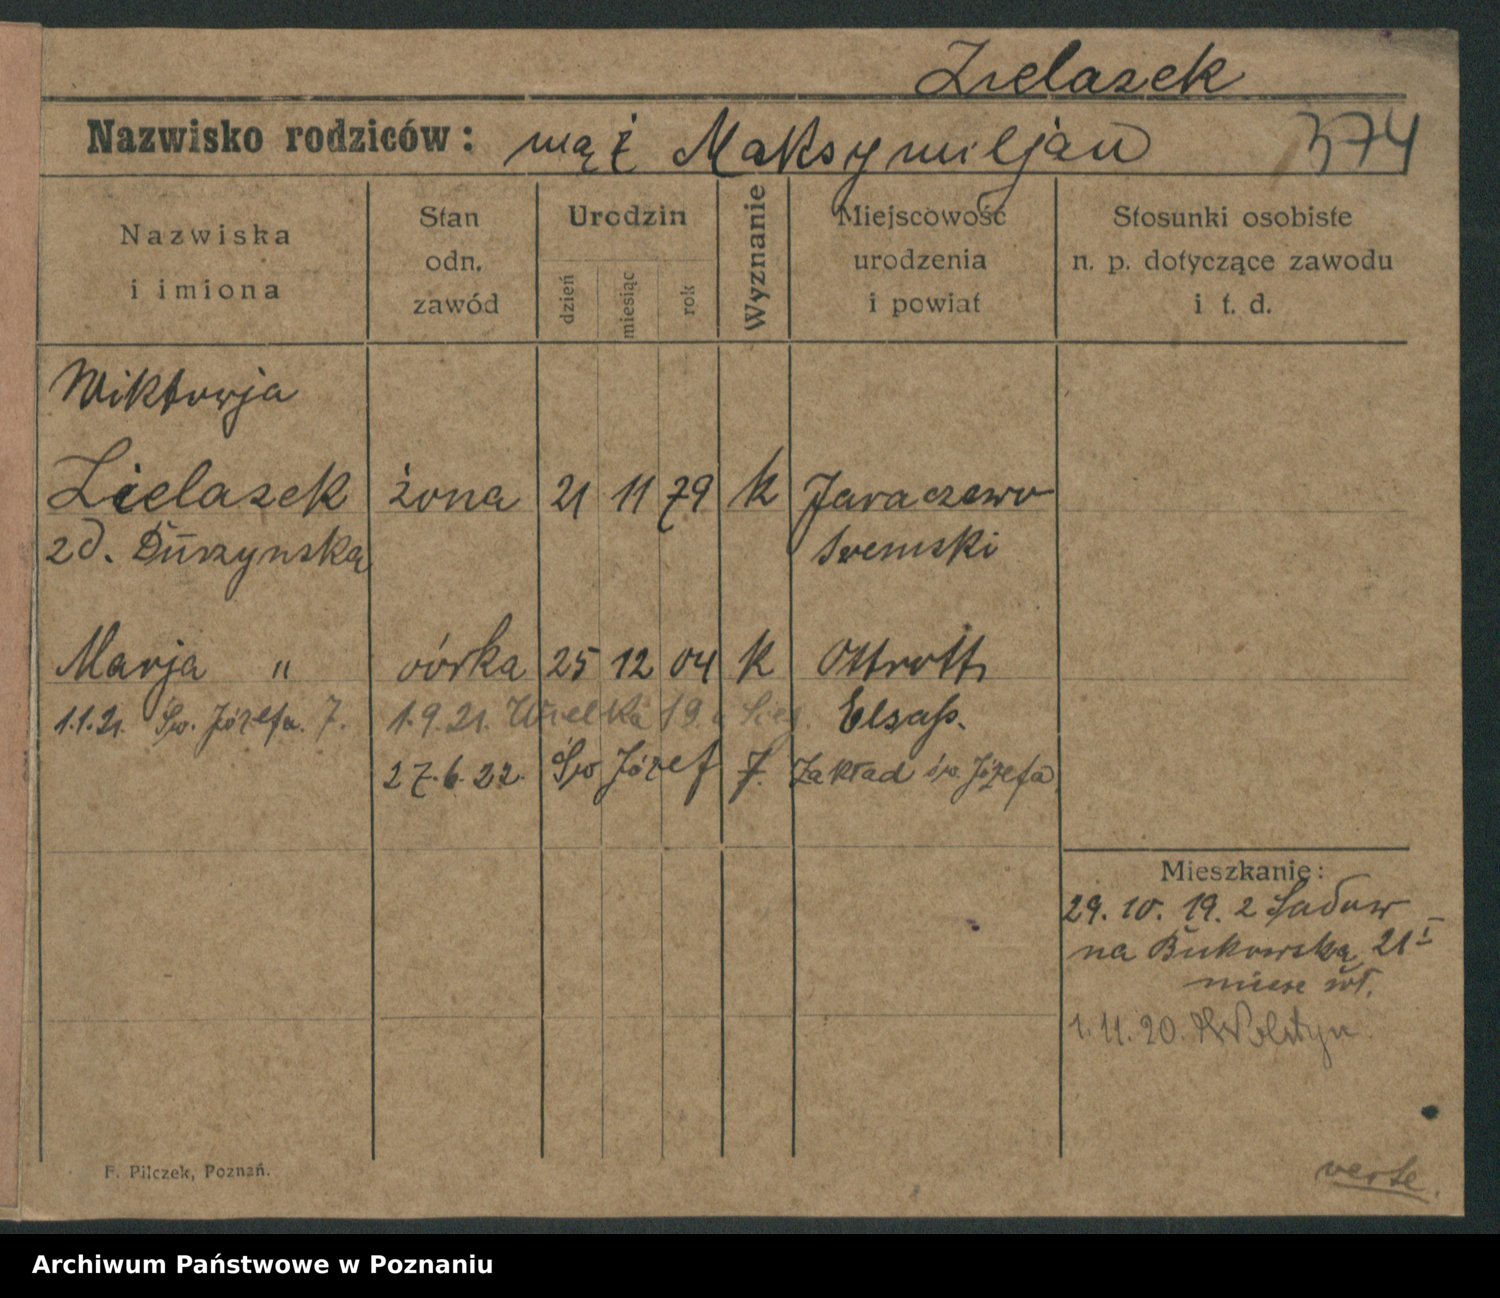 Zielasek
Nazwisko rodziców: mąż Maksymiljan 374
Nazwiska i imiona
Stan odn. zawód
Urodzin
dzień miesiąc rok
Wyznanie
Miejscowość urodzenia i powiat
Stosunki osobiste n. p. dotyczące zawodu i t. d.
Wiktorja
Zielasek żona 21 11 79 k Jaraczewo
zd. Duszynska Sremski
Marja " córka 25 12 04 k Ottrott
1.1.21. Św. Józefa 7. 1.9.21. Wielka 19. Elsaß.
27.6.22. Św Józef 7. Zakład św. Józefa
Mieszkanie:
29. 10. 19. z Sadów
na Bukowską 21 I
1. 11. 20. Wolsztyn
F. Pilczek, Poznań.
verte.
Archiwum Państwowe w Poznaniu